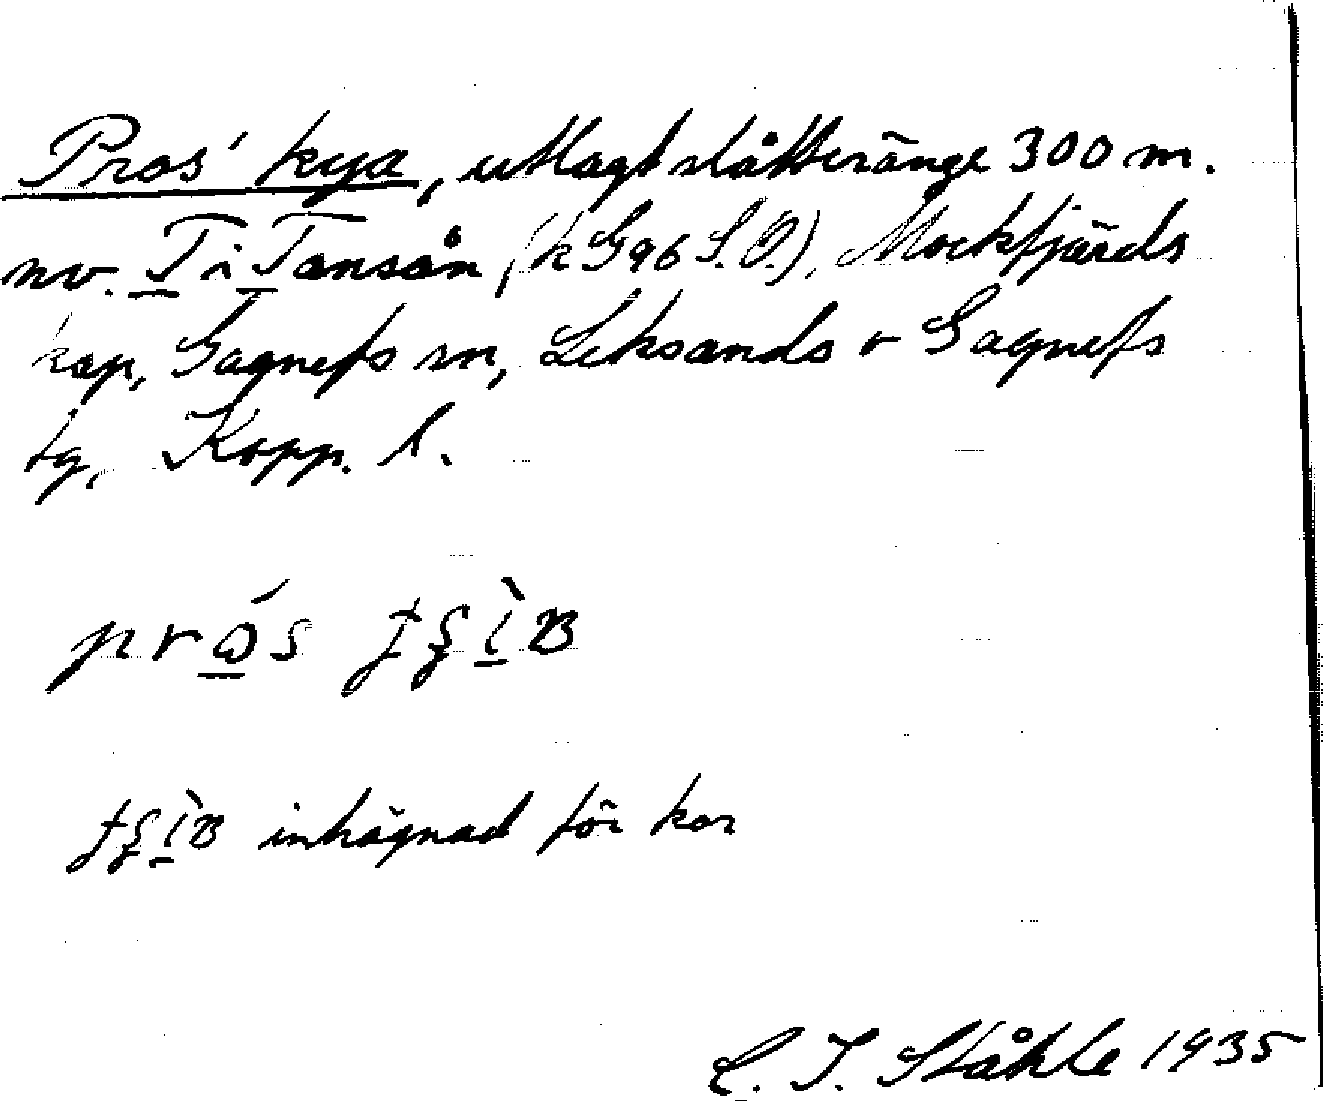 Pros' kya, utlagt slåtteränge 300 m.
nv. T i Tansån (k G 96 S.O.), Mockfjärds
kap, Gagnefs sn, Leksands o Gagnefs
tg, Kopp. l.
inhägnad för kor
C. I. Ståhle 1935